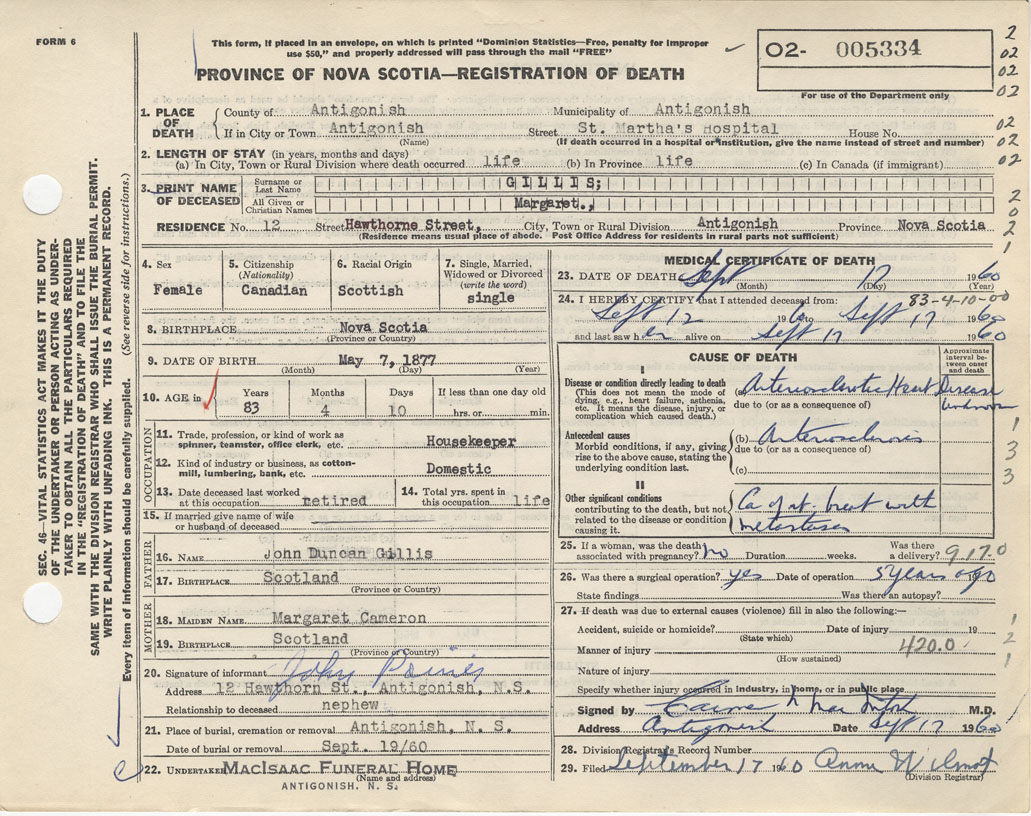 FORM 6
This form, if placed in an envelope, on which is printed "Dominion Statistics—Free, penalty for improper
use $50," and properly addressed will pass through the mail "FREE"
O2- 005334
For use of the Department only
PROVINCE OF NOVA SCOTIA—REGISTRATION OF DEATH
2
02
02
02
02
02
2
0
2
1
SEC. 46—VITAL STATISTICS ACT MAKES IT THE DUTY
OF THE UNDERTAKER OR PERSON ACTING AS UNDER-
TAKER TO OBTAIN ALL THE PARTICULARS REQUIRED
IN THE "REGISTRATION OF DEATH" AND TO FILE THE
SAME WITH THE DIVISION REGISTRAR WHO SHALL ISSUE THE BURIAL PERMIT.
WRITE PLAINLY WITH UNFADING INK. THIS IS A PERMANENT RECORD.
Every item of information should be carefully supplied. (See reverse side for instructions.)
1. PLACE OF DEATH
County of Antigonish Municipality of Antigonish
If in City or Town Antigonish Street St. Martha's Hospital House No.
(Name) (If death occurred in a hospital or institution, give the name instead of street and number)
2. LENGTH OF STAY (in years, months and days)
(a) In City, Town or Rural Division where death occurred life (b) In Province life (c) In Canada (if immigrant)
3. PRINT NAME OF DECEASED
Surname or Last Name GILLIS;
All Given or Christian Names Margaret.,
RESIDENCE No. 12 Street Hawthorne Street, City, Town or Rural Division Antigonish Province Nova Scotia
(Residence means usual place of abode. Post Office Address for residents in rural parts not sufficient)
4. Sex
Female
5. Citizenship
(Nationality)
Canadian
6. Racial Origin
Scottish
7. Single, Married,
Widowed or Divorced
(write the word)
single
8. BIRTHPLACE Nova Scotia
(Province or Country)
9. DATE OF BIRTH May 7, 1877
(Month) (Day) (Year)
10. AGE in
Years 83
Months 4
Days 10
If less than one day old
hrs. or min.
OCCUPATION
11. Trade, profession, or kind of work as
spinner, teamster, office clerk, etc. Housekeeper
12. Kind of industry or business, as cotton-
mill, lumbering, bank, etc. Domestic
13. Date deceased last worked
at this occupation retired
14. Total yrs. spent in
this occupation life
15. If married give name of wife
or husband of deceased
FATHER
16. NAME John Duncan Gillis
17. BIRTHPLACE Scotland
(Province or Country)
MOTHER
18. MAIDEN NAME Margaret Cameron
19. BIRTHPLACE Scotland
(Province or Country)
20. Signature of informant John
Address 12 Hawthorn St., Antigonish, N.S.
Relationship to deceased nephew
21. Place of burial, cremation or removal Antigonish, N. S.
Date of burial or removal Sept. 19/60
22. UNDERTAKER MACISAAC FUNERAL HOME
(Name and address)
ANTIGONISH, N. S.
MEDICAL CERTIFICATE OF DEATH
23. DATE OF DEATH Sept 17 1960
(Month) (Day) (Year)
83-4-10-00
24. I HEREBY CERTIFY that I attended deceased from:
Sept 12 1960 to Sept 17 1960
and last saw her alive on Sept 17 1960
CAUSE OF DEATH
Approximate interval between onset and death
I
Disease or condition directly leading to death
(This does not mean the mode of
dying, e.g., heart failure, asthenia,
etc. It means the disease, injury, or
complication which caused death.)
(a) Arteriosclerotic Heart Disease
unknown
due to (or as a consequence of)
Antecedent causes
Morbid conditions, if any, giving
rise to the above cause, stating the
underlying condition last.
(b) Arteriosclerosis
due to (or as a consequence of)
(c)
1
3
3
3
II
Other significant conditions
contributing to the death, but not
related to the disease or condition
causing it.
Ca of rt. breast with
metastases
25. If a woman, was the death
associated with pregnancy? no Duration weeks. Was there
a delivery?
9.17.0
26. Was there a surgical operation? yes Date of operation 5 years ago 19
State findings Was there an autopsy?
27. If death was due to external causes (violence) fill in also the following:—
Accident, suicide or homicide? Date of injury 19
(State which)
Manner of injury 420.0
(How sustained)
Nature of injury
1
2
1
Specify whether injury occurred in industry, in home, or in public place
Signed by M.D.
Address Antigonish Date Sept 17 1960
28. Division Registrar's Record Number
29. Filed September 17 1960 Anna Wilmot
(Division Registrar)